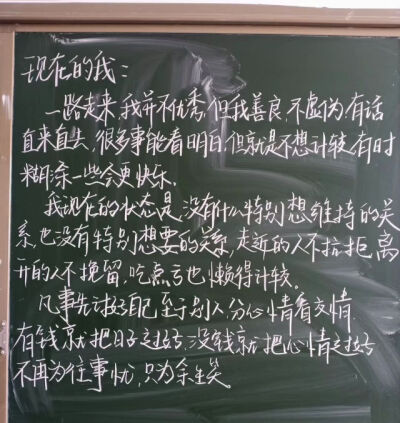 现在的我:
一路走来,我并不优秀,但我善良,不虚伪,有话
直来直去,很多事能看明白,但就是不想计较,有时
糊涂一些会更快乐.
我现在的状态是,没有什么特别想维持的关
系,也没有特别想要的关系,走近的人不抗拒,离
开的人不挽留,吃点亏也懒得计较.
凡事先讨好自己,至于别人,分心情看交情.
有钱就把日子过好,没钱就把心情过好
不再为往事忧,只为余生笑.